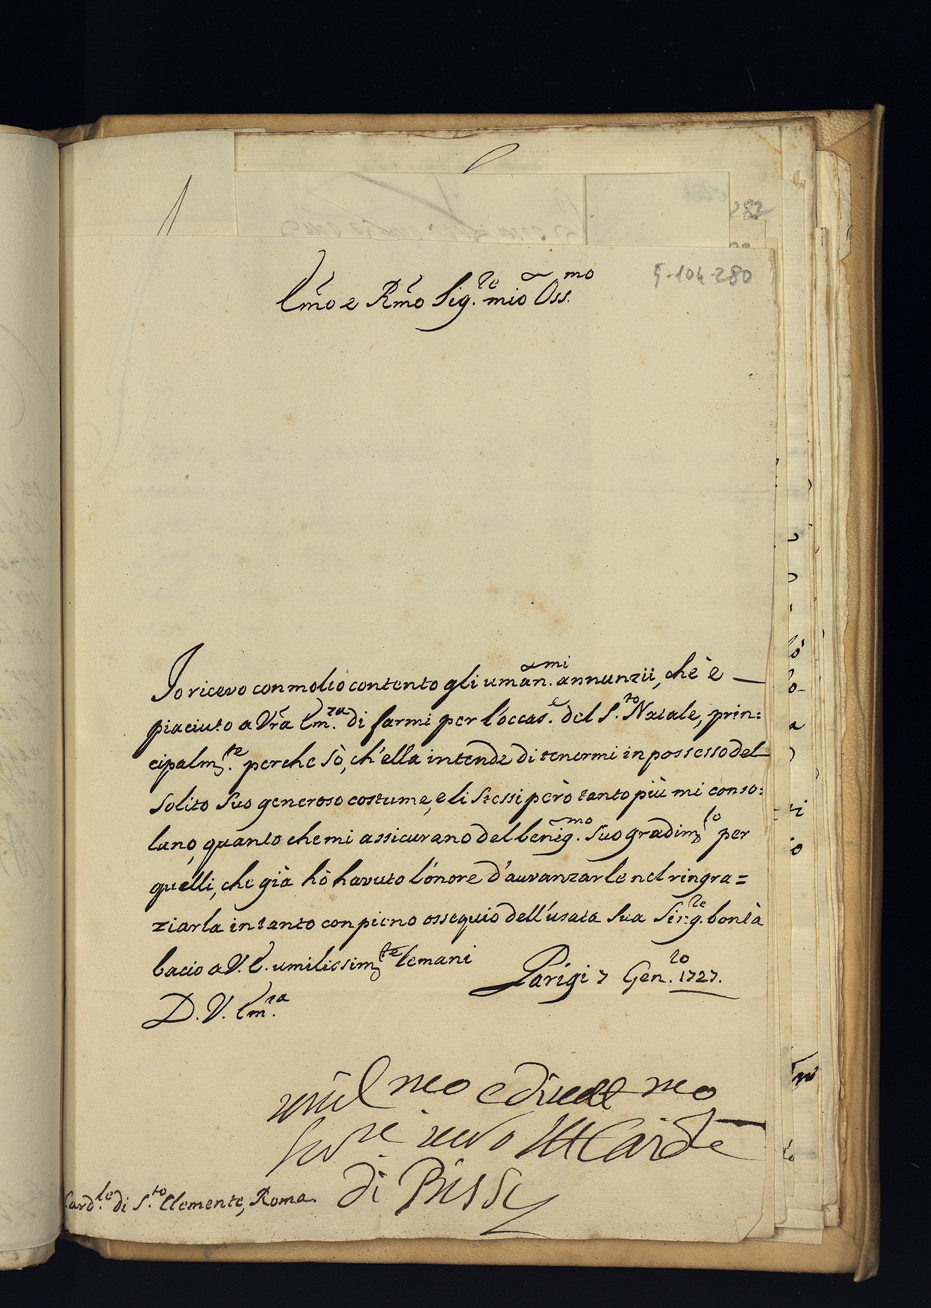 282
9-104-280
Em̃o e Rm̃o Sig.re mio Oss.mo
Io ricevo con molto contento gli uman.mi annunzii, che è
piaciuto a Vr̃a Em.za di farmi per l'occas.e del S.to Natale, prin:
cipalm.te perche sò, ch'ella intende di tenermi in possesso del
solito suo generoso costume, e li stessi però tanto più mi conso:
lano, quanto che mi assicurano del benig.mo suo gradim.to per
quelli, che già hò havuto l'onore d'avvanzarle nel ringra=
ziarla intanto con pieno ossequio dell'usata sua Sing.re bontà
bacio a V. E. umilissim.te le mani
Parigi 7 Gen.ro 1727.
D. V. Em.za
umil mo e di
ser re vero Il Card le
di Bissy
Card.le di S.to Clemente, Roma.